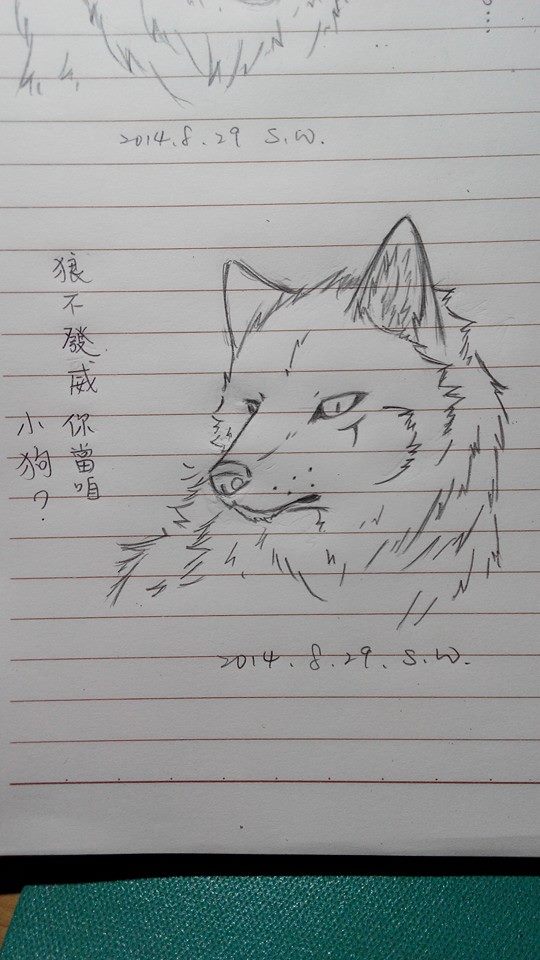 2014.8.29 S.W.
狼不發威你當咱
小狗?
2014.8.29. S.W.